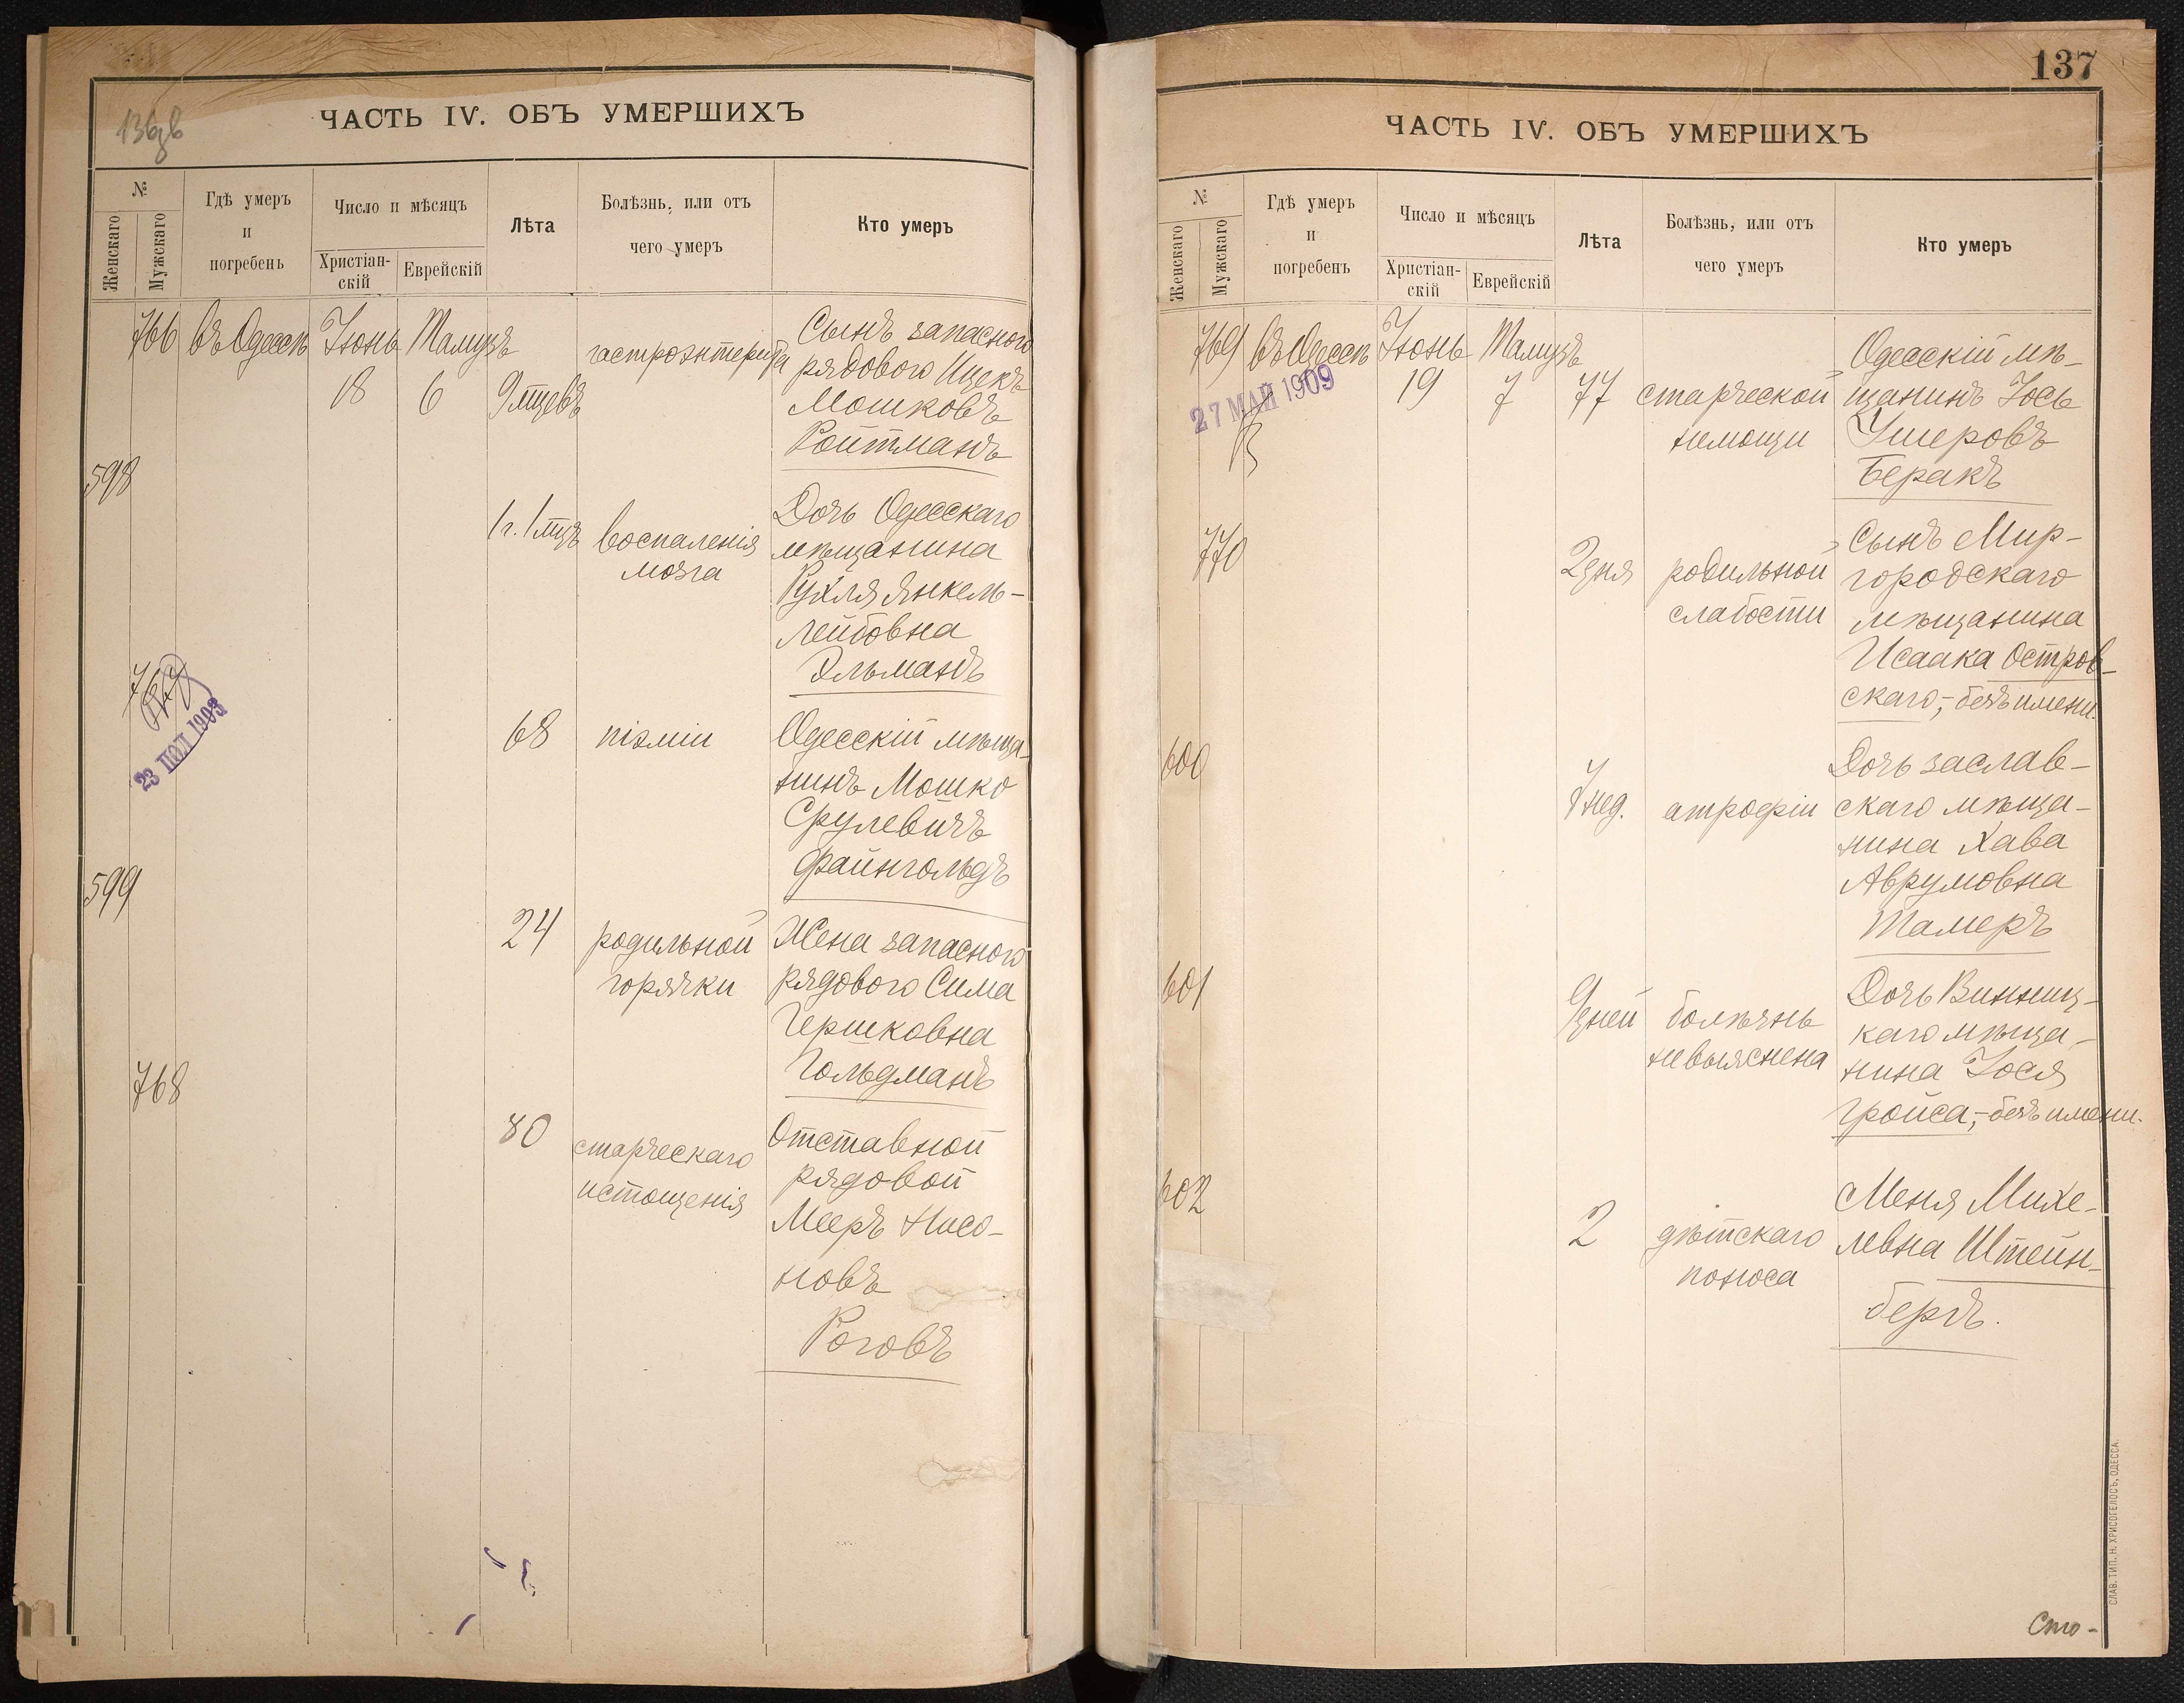 136 об
ЧАСТЬ IV. ОБЪ УМЕРШИХЪ
№
Женскаго
Мужскаго
Гдѣ умеръ
и
погребенъ
Число и мѣсяцъ
Христіан-
скій
Еврейскій
Лѣта
Болѣзнь, или отъ
чего умеръ
Кто умеръ
766 въ Одессѣ Іюнь Тамузъ
18 6 9 мцевъ
гастроэнтерита
Сынъ запасного
рядового Ицекъ
Мошковъ
Ройтманъ
598
1 г. 1 мцъ
воспаленія
мозга
Дочь Одесскаго
мѣщанина
Рухля Янкель-
Лейбовна
Эльманъ
767
23 1903
68
піэміи
Одесскій мѣща-
нинъ Мошко
Срулевичъ
Файнгольдъ
599
24
родильной
горячки
Жена запасного
рядового Сима
Гершковна
Гольдманъ
768
80
старческаго
истощенія
Отставной
рядовой
Мееръ Нисо-
новъ
Роговъ
137
ЧАСТЬ IV. ОБЪ УМЕРШИХЪ
№
Женскаго
Мужскаго
Гдѣ умеръ
и
погребенъ
Число и мѣсяцъ
Христіан-
скій
Еврейскій
Лѣта
Болѣзнь, или отъ
чего умеръ
Кто умеръ
769 въ Одессѣ Іюнь Тамузъ
19 7 77
27 МАЙ 1909
старческой
немощи
Одесскій мѣ-
щанинъ Іось
Ушеровъ
Беракъ
770
2 дня
родильной
слабости
Сынъ Мир-
городскаго
мѣщанина
Исаака Остров-
скаго,- безъ имени.
600
7 нед.
атрофіи
Дочь заслав-
скаго мѣща-
нина Хава
Аврумовна
Тамеръ
601
9 дней
болѣзнь
невыяснена
Дочь Винниц-
каго мѣща-
нина Іося
Гройса,- безъ имени.
602
2
дѣтскаго
поноса
Меня Михе-
левна Штейн-
бергъ.
Сто-
СЛАВ. ТИП. Н. ХРИСОГЕЛОСЪ, ОДЕССА.